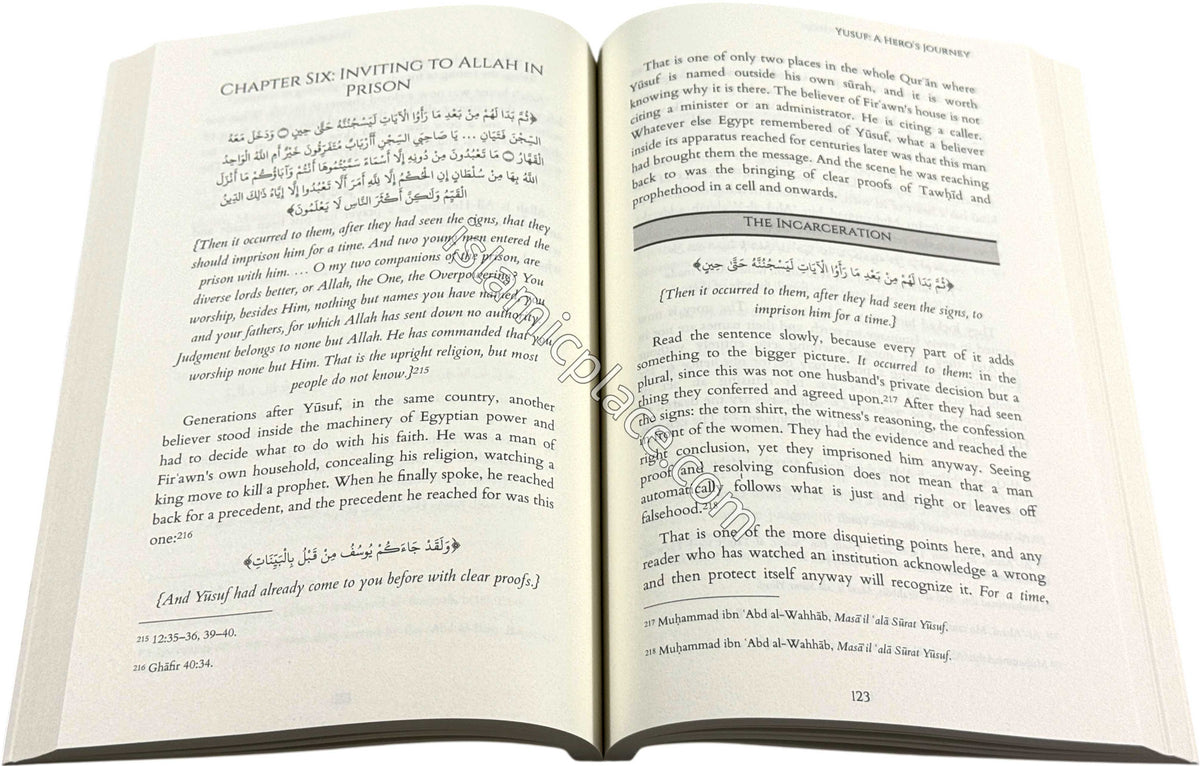 CHAPTER SIX: INVITING TO ALLAH IN
PRISON
﴿ثُمَّ بَدَا لَهُمْ مِنْ بَعْدِ مَا رَأَوُا الْآيَاتِ لَيَسْجُنُنَّهُ حَتَّىٰ حِينٍ ۝ وَدَخَلَ مَعَهُ
السِّجْنَ فَتَيَانِ ... يَا صَاحِبَيِ السِّجْنِ أَأَرْبَابٌ مُتَفَرِّقُونَ خَيْرٌ أَمِ اللَّهُ الْوَاحِدُ
الْقَهَّارُ ۝ مَا تَعْبُدُونَ مِنْ دُونِهِ إِلَّا أَسْمَاءً سَمَّيْتُمُوهَا أَنْتُمْ وَآبَاؤُكُمْ مَا أَنْزَلَ
اللَّهُ بِهَا مِنْ سُلْطَانٍ إِنِ الْحُكْمُ إِلَّا لِلَّهِ أَمَرَ أَلَّا تَعْبُدُوا إِلَّا إِيَّاهُ ذَالِكَ الدِّينُ
الْقَيِّمُ وَلَٰكِنَّ أَكْثَرَ النَّاسِ لَا يَعْلَمُونَ﴾
{Then it occurred to them, after they had seen the signs, that they
should imprison him for a time. And two young men entered the
prison with him. … O my two companions of the prison, are
diverse lords better, or Allah, the One, the Overpowering? You
worship, besides Him, nothing but names you have named, you
and your fathers, for which Allah has sent down no authority.
Judgment belongs to none but Allah. He has commanded that you
worship none but Him. That is the upright religion, but most
people do not know.}215
Generations after Yūsuf, in the same country, another
believer stood inside the machinery of Egyptian power and
had to decide what to do with his faith. He was a man of
Fir'awn's own household, concealing his religion, watching a
king move to kill a prophet. When he finally spoke, he reached
back for a precedent, and the precedent he reached for was this
one:216
﴿وَلَقَدْ جَاءَكُمْ يُوسُفُ مِنْ قَبْلُ بِالْبَيِّنَاتِ﴾
{And Yūsuf had already come to you before with clear proofs.}
215 12:35–36, 39–40.
216 Ghāfir 40:34.
YUSUF: A HERO'S JOURNEY
That is one of only two places in the whole Qur'ān where
Yūsuf is named outside his own sūrah, and it is worth
knowing why it is there. The believer of Fir'awn's house is not
citing a minister or an administrator. He is citing a caller.
Whatever else Egypt remembered of Yūsuf, what a believer
inside its apparatus reached for centuries later was that this man
had brought them the message. And the scene he was reaching
back to was the bringing of clear proofs of Tawḥīd and
prophethood in a cell and onwards.
THE INCARCERATION
﴿ثُمَّ بَدَا لَهُمْ مِنْ بَعْدِ مَا رَأَوُا الْآيَاتِ لَيَسْجُنُنَّهُ حَتَّىٰ حِينٍ﴾
{Then it occurred to them, after they had seen the signs, to
imprison him for a time.}
Read the sentence slowly, because every part of it adds
something to the bigger picture. It occurred to them: in the
plural, since this was not one husband's private decision but a
thing they conferred and agreed upon.217 After they had seen
the signs: the torn shirt, the witness's reasoning, the confession
in front of the women. They had the evidence and reached the
right conclusion, yet they imprisoned him anyway. Seeing
proof and resolving confusion does not mean that a man
automatically follows what is just and right or leaves off
falsehood.218
That is one of the more disquieting points here, and any
reader who has watched an institution acknowledge a wrong
and then protect itself anyway will recognize it. For a time,
217 Muḥammad ibn 'Abd al-Wahhāb, Masā'il 'alā Sūrat Yūsuf.
218 Muḥammad ibn 'Abd al-Wahhāb, Masā'il 'alā Sūrat Yūsuf.
123
islamicplace.com